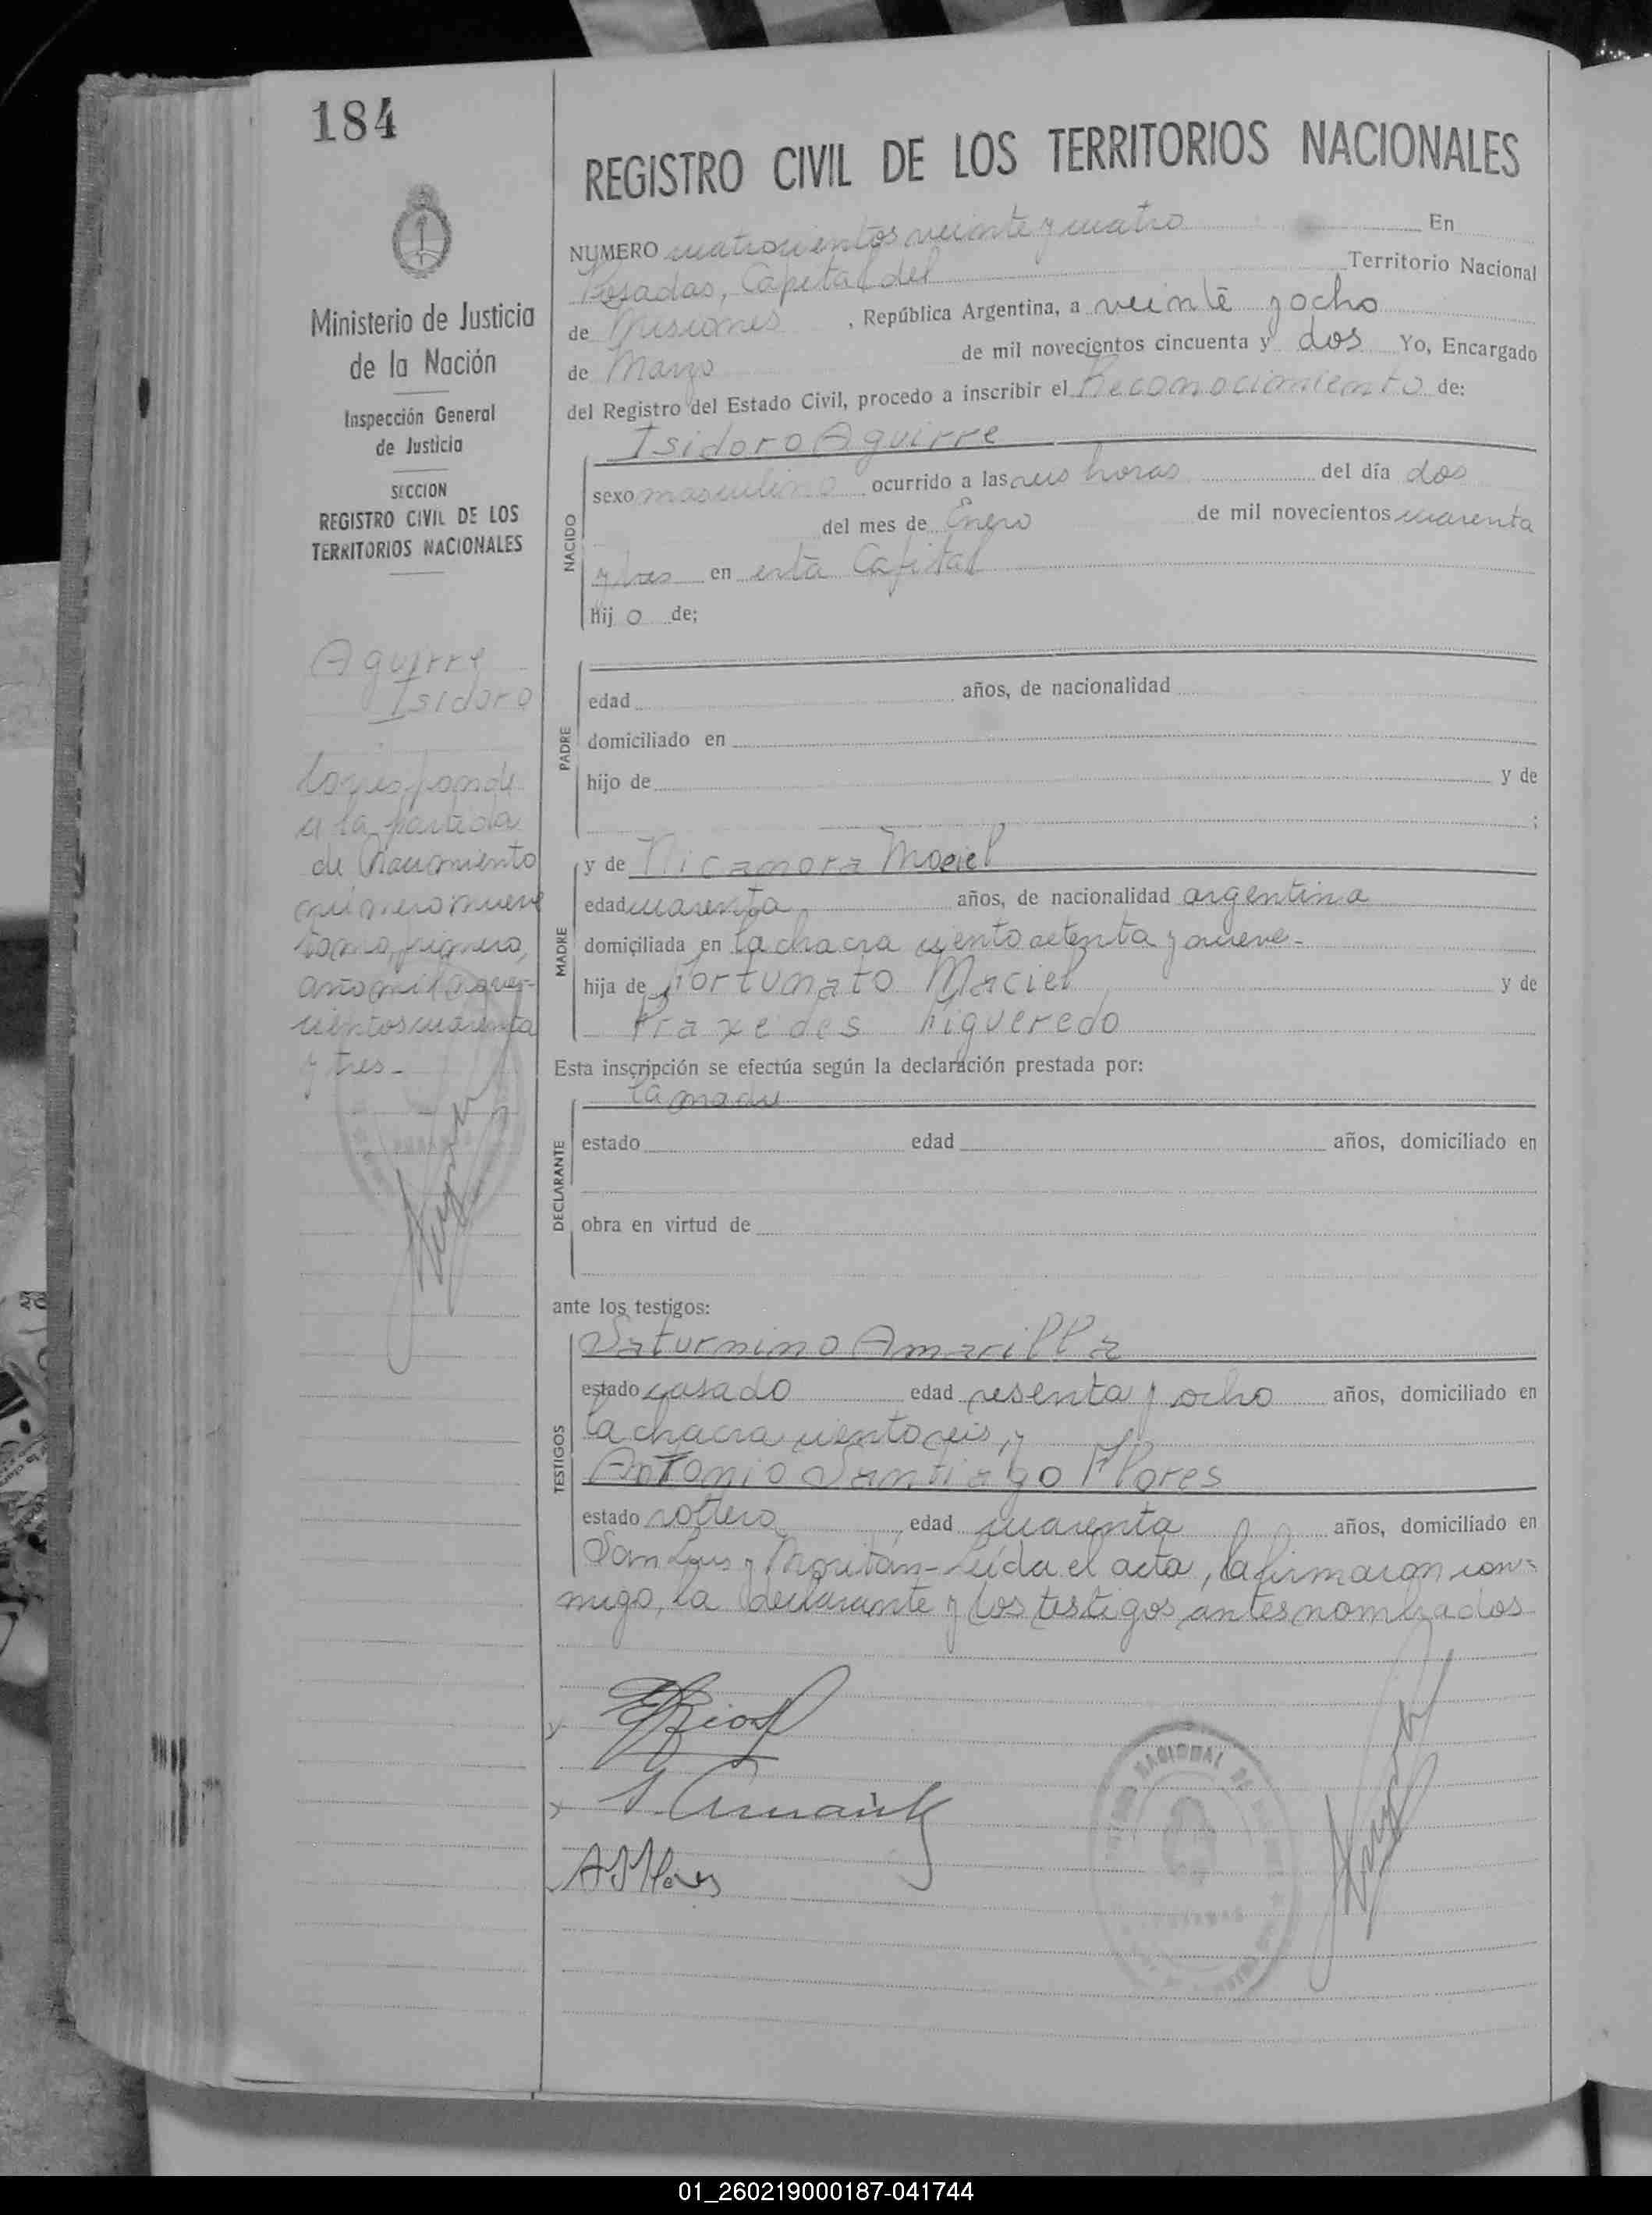 184
Ministerio de Justicia
de la Nación
Inspección General
de Justicia
SECCION
REGISTRO CIVIL DE LOS
TERRITORIOS NACIONALES
Aguirre
Isidoro
Corresponde
a la partida
de Nacimiento
número nueve
tomo primero,
año mil nove-
cientos cuarenta
y tres -
REGISTRO CIVIL DE LOS TERRITORIOS NACIONALES
NUMERO cuatrocientos veinte y cuatro En
Posadas, Capital del Territorio Nacional
de Misiones , República Argentina, a veinte y ocho
de Marzo de mil novecientos cincuenta y dos Yo, Encargado
del Registro del Estado Civil, procedo a inscribir el Reconocimiento de:
Isidoro Aguirre
NACIDO
sexo masculino ocurrido a las seis horas del día dos
del mes de Enero de mil novecientos cuarenta
y tres en esta Capital
hij o de;
PADRE
edad años, de nacionalidad
domiciliado en
hijo de y de
;
MADRE
y de Nicanora Maciel
edad cuarenta años, de nacionalidad argentina
domiciliada en la chacra ciento setenta y nueve -
hija de Fortunato Maciel y de
Praxedes Figueredo
Esta inscripción se efectúa según la declaración prestada por:
la madre
DECLARANTE
estado edad años, domiciliado en
obra en virtud de
ante los testigos:
TESTIGOS
Saturnino Amarilla
estado casado edad sesenta y ocho años, domiciliado en
la chacra ciento seis, y
Antonio Santiago Flores
estado soltero edad cuarenta años, domiciliado en
San Luis y Moritán - Leída el acta, la firmaron con-
migo, la declarante y los testigos antes nombrados
S. Amarilla
A S Flores
NACIONAL DE
01_260219000187-041744